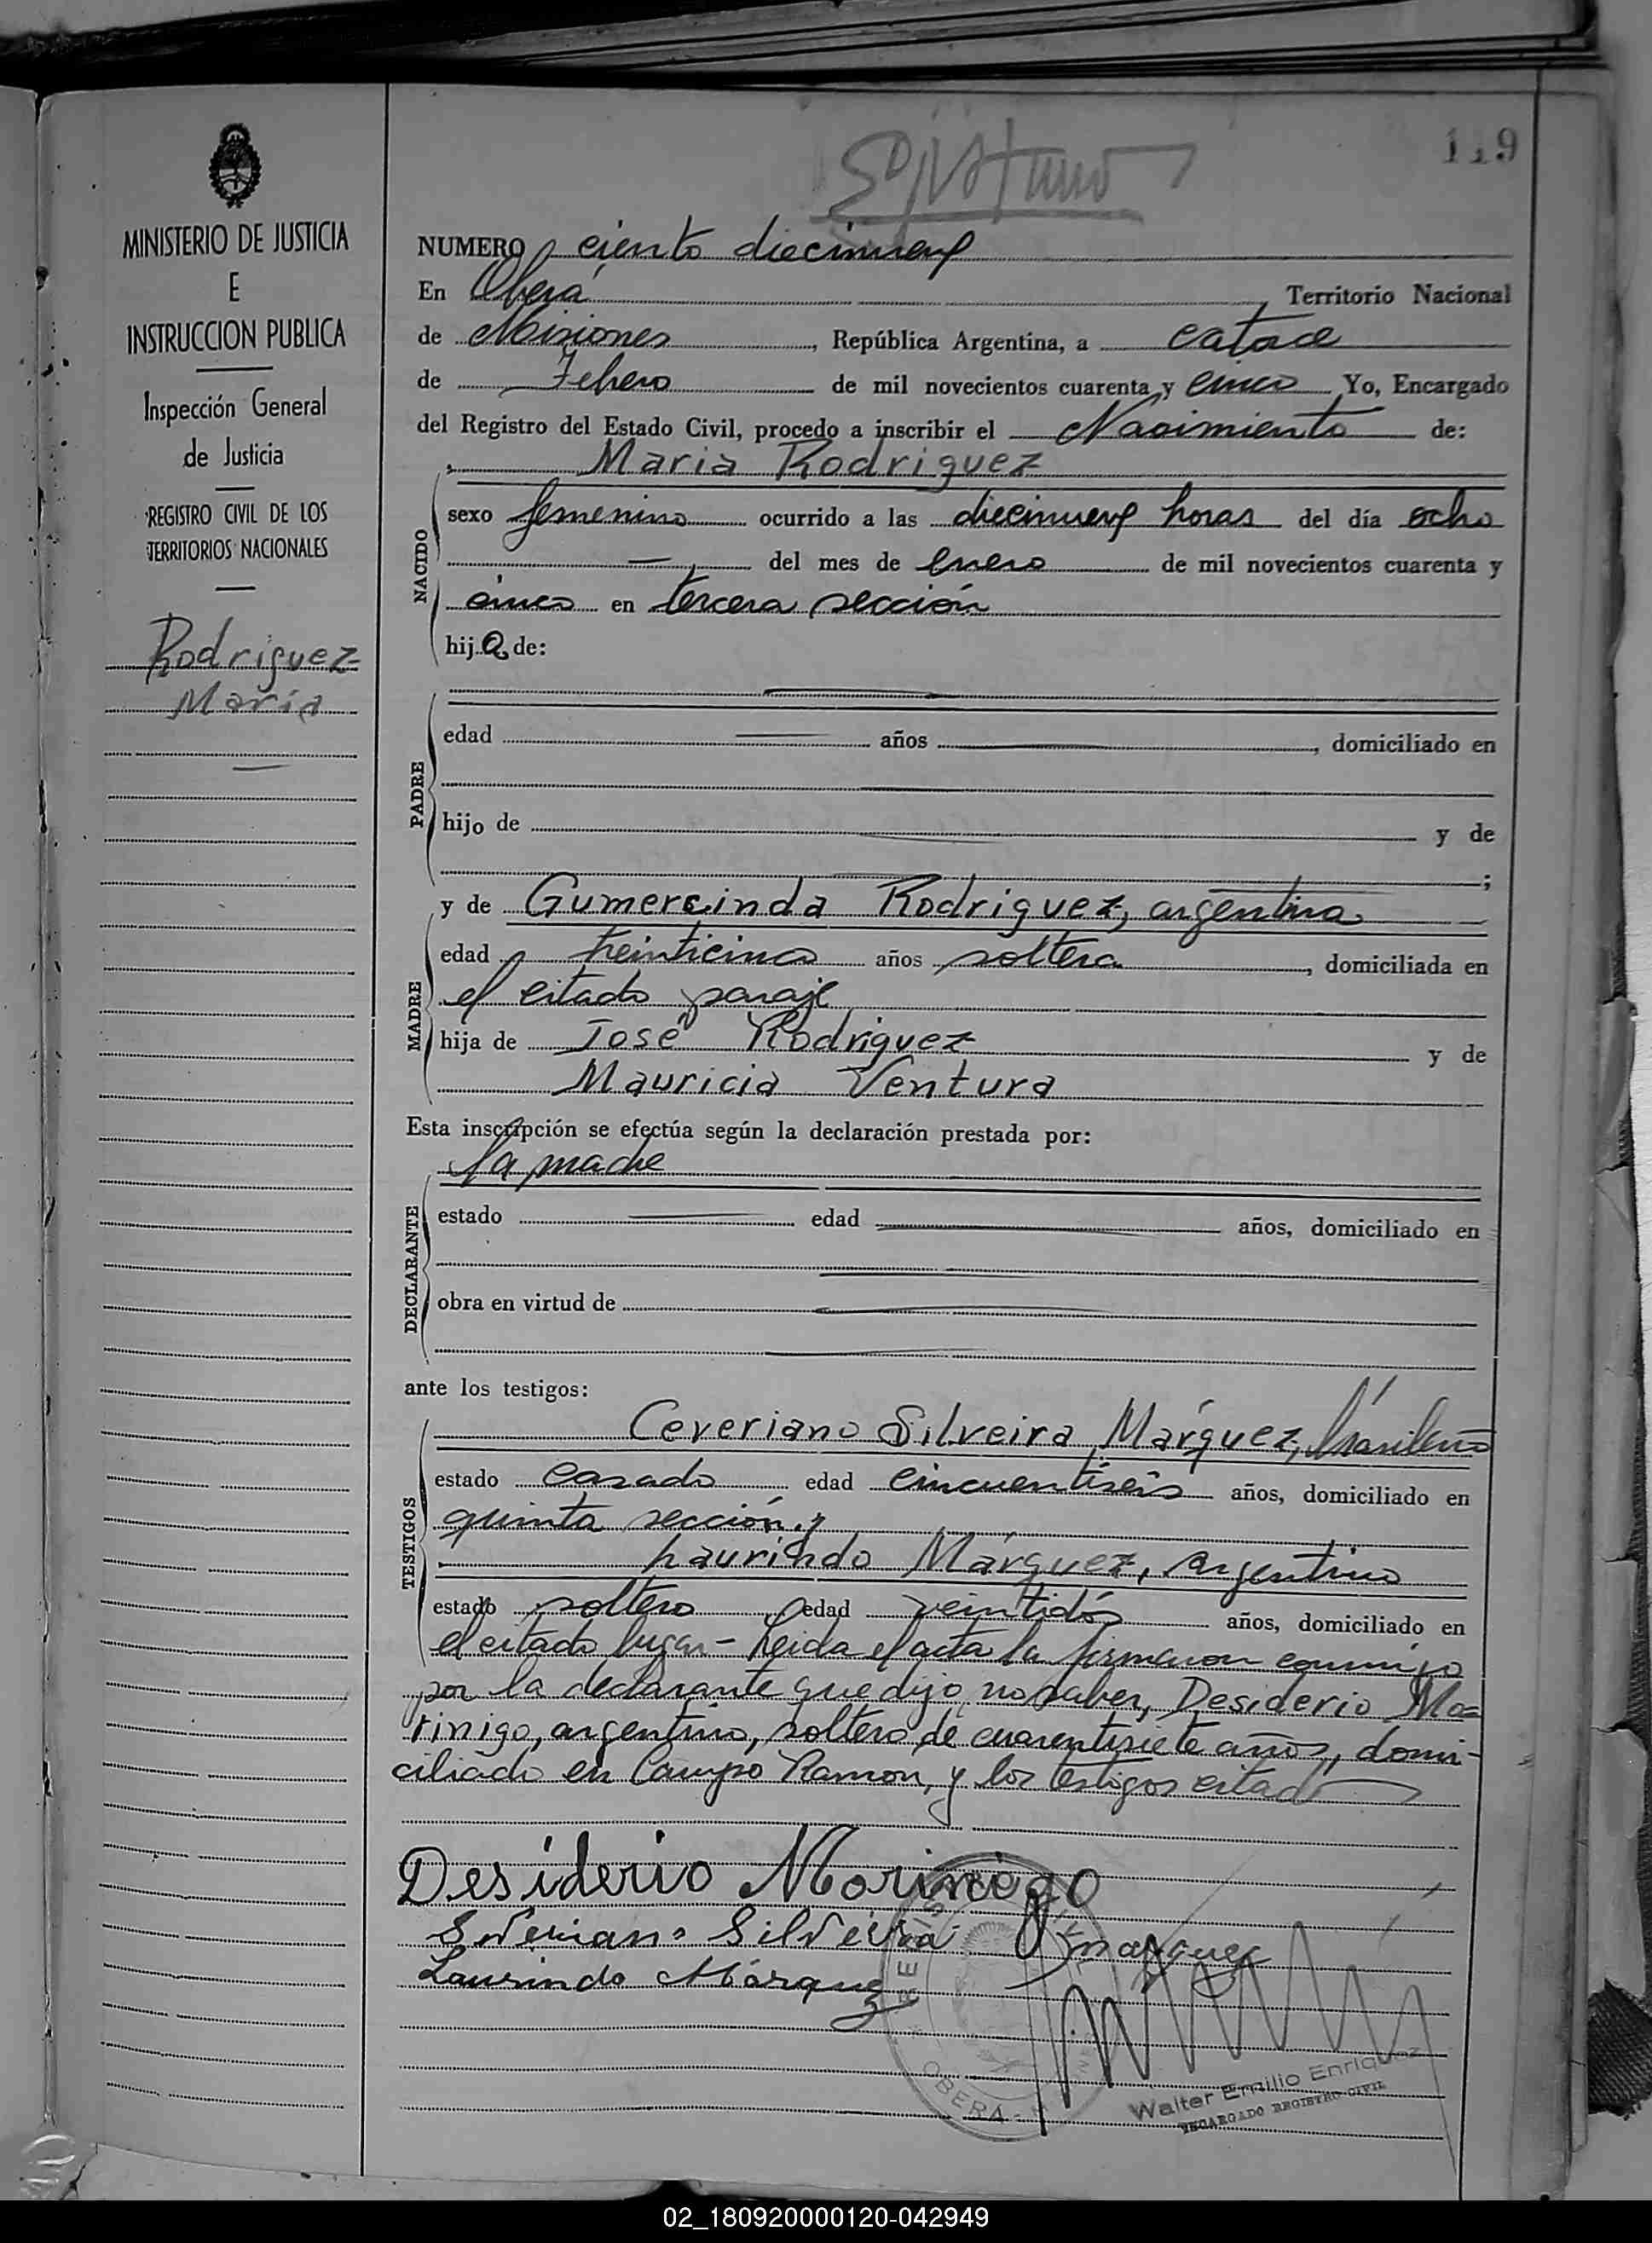 119
NUMERO ciento diecinueve
En Oberá, Territorio Nacional
de Misiones, República Argentina, a catorce
de Febrero de mil novecientos cuarenta y cinco Yo, Encargado
del Registro del Estado Civil, procedo a inscribir el Nacimiento de:
Maria Rodriguez
NACIDO
sexo femenino ocurrido a las diecinueve horas del día ocho
del mes de Enero de mil novecientos cuarenta y
cinco en tercera sección
hija de:
PADRE
edad años, domiciliado en
hijo de y de
;
MADRE
y de Gumercinda Rodriguez, argentina
edad treinticinco años soltera, domiciliada en
el citado paraje
hija de José Rodriguez y de
Mauricia Ventura
Esta inscripción se efectúa según la declaración prestada por:
la madre
DECLARANTE
estado edad años, domiciliado en
obra en virtud de
ante los testigos:
TESTIGOS
Ceveriano Silveira Márquez, brasileño
estado casado edad cincuentiseis años, domiciliado en
quinta sección y
Laurindo Márquez, argentino
estado soltero edad veintidós años, domiciliado en
el citado lugar - Leida el acta la firmaron conmigo
por la declarante que dijo no saber, Desiderio Mo=
rinigo, argentino, soltero de cuarentisiete años, domi-
ciliado en Campo Ramon, y los testigos citad
Desiderio Morinigo
Severiano Silveira Marquez
Laurindo Márquez
OBERA
Walter Emilio Enriquez
ENCARGADO REGISTRO CIVIL
MINISTERIO DE JUSTICIA
E
INSTRUCCION PUBLICA
Inspección General
de Justicia
REGISTRO CIVIL DE LOS
TERRITORIOS NACIONALES
Rodriguez
Maria
02_180920000120-042949